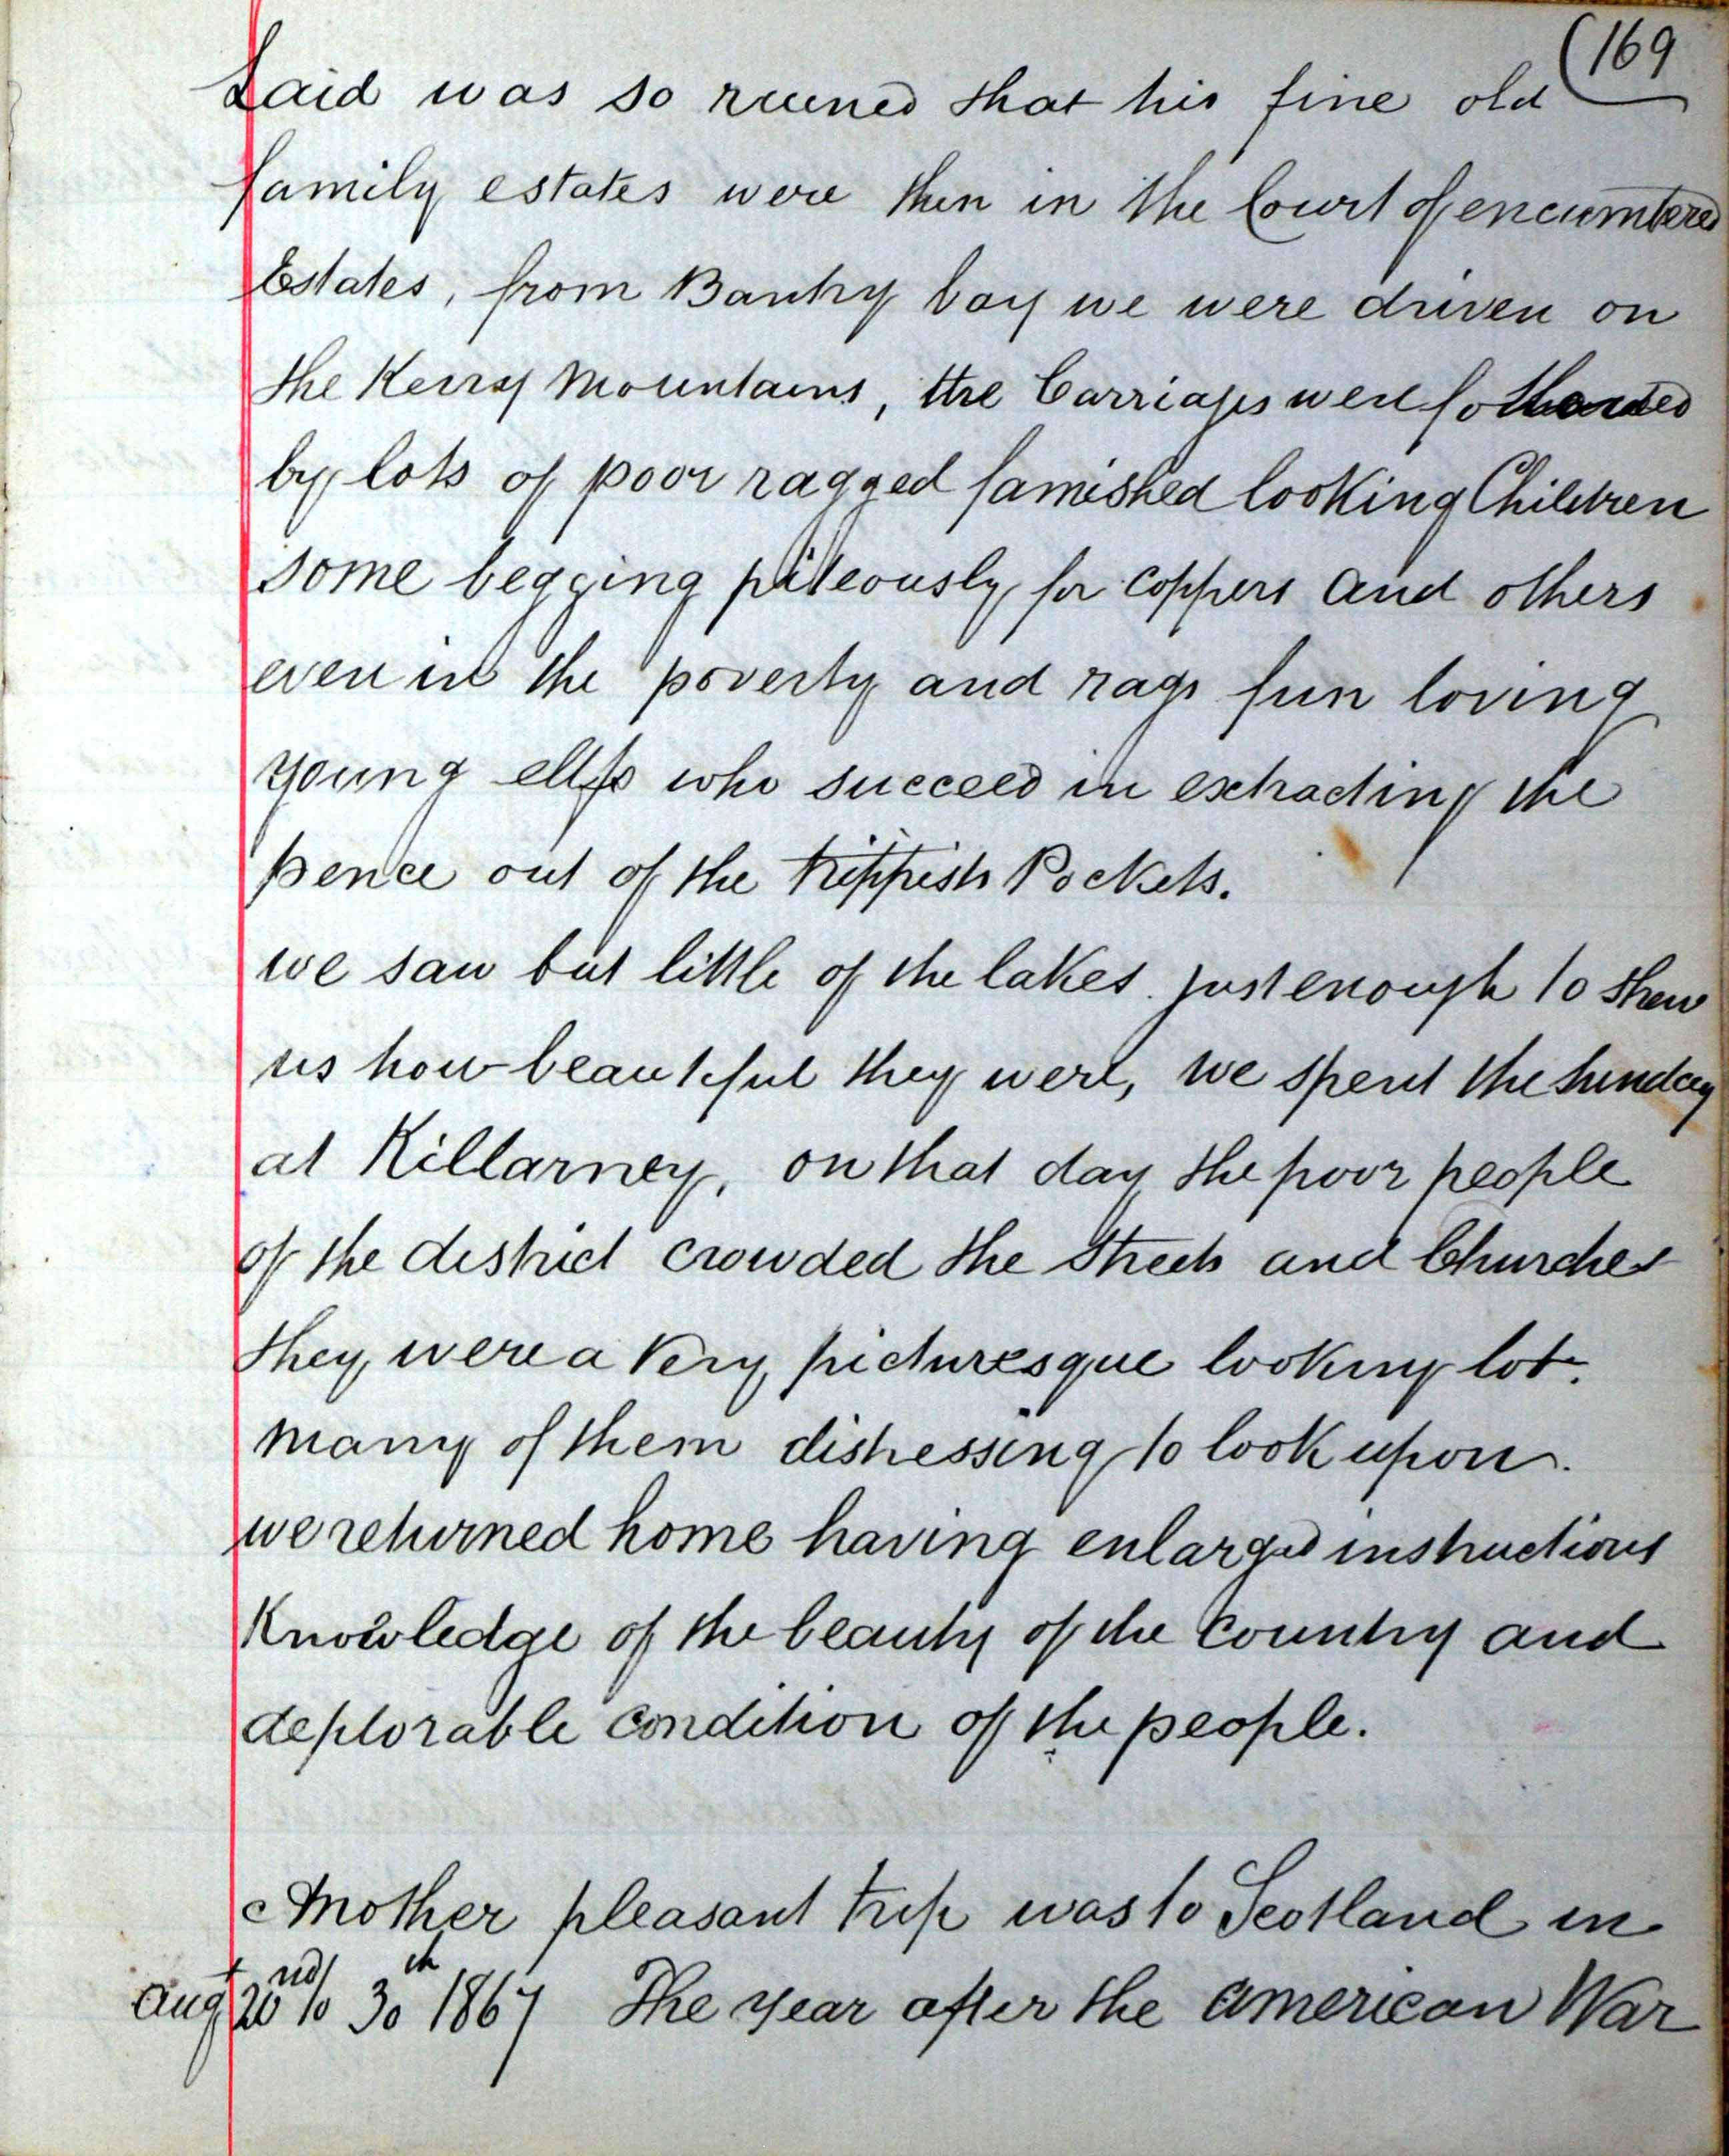 (169
Laid was so ruened that his fine old
family estates were then in the Court of encumbered
Estates, from Bantry bay we were driven on
the Kerry Mountains, the Carriages were followed
by lots of poor ragged famished looking Children
some begging piteously for coppers and others
even in the poverty and rags fun loving
young elfs who succeed in extracting the
pence out of the Pockets.
we saw but little of the lakes. just enough to shew
us how beautiful they were, we spent the Sunday
at Killarney, on that day the poor people
of the district crowded the streets and Churches
they were a very picturesque looking lot.
many of them distressing to look upon.
we returned home having enlarged instructions
Knowledge of the beauty of the Country and
deplorable condition of the people.
Another pleasant trip was to Scotland in
Augt to 30th 1867 The year after the American War